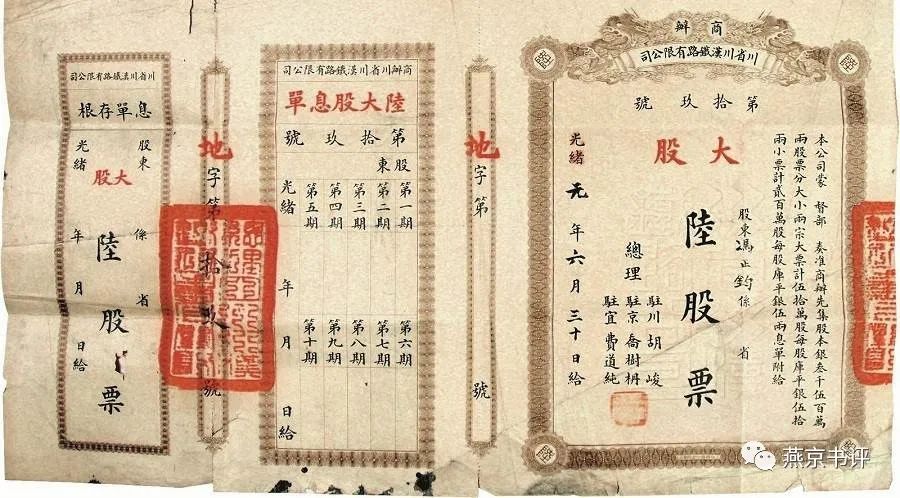 商辦
川省川漢鐵路有限公司
第拾玖號
本公司蒙 督部 奏准商辦先集股本銀叁千伍百萬
兩股票分大小兩宗大票計伍拾萬股每股庫平銀伍拾
兩小票計貳百萬股每股庫平銀伍兩息單附給
大股
股東馮正鈞係 省
陸股票
駐川胡峻
總理 駐京喬樹枬
駐宜費道純
光緒元年六月三十日給
地字第 號
商辦川省川漢鐵路有限公司
陸大股息單
第拾玖號
股東
第一期 第六期
第二期 第七期
第三期 第八期
第四期 第九期
第五期 第十期
光緒 年 月 日給
地字第拾玖號
川省川漢鐵路有限公司
息單存根
股東 係 省
大股
陸股票
光緒 年 月 日給
燕京书评